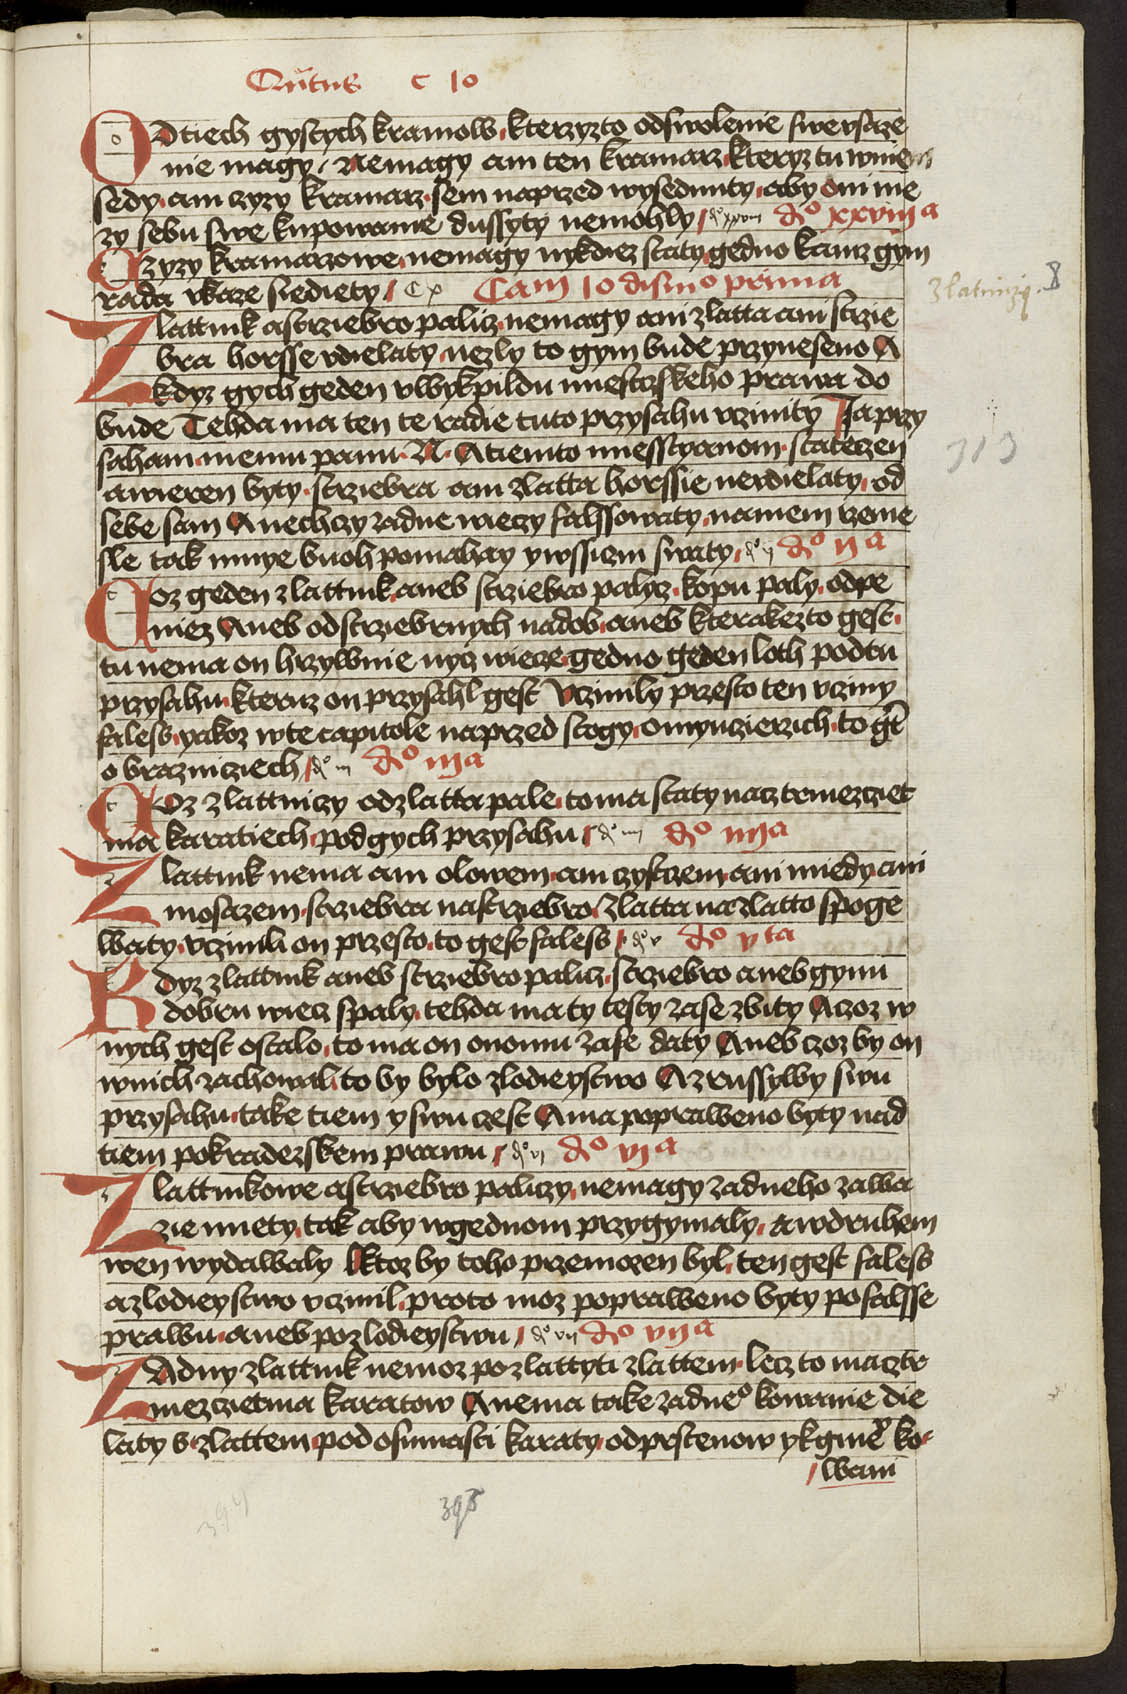 Quintus c 10
Od tiech gystych kramow kterzyzto odswolenie swe wsaze
nie magy / Nemagy ani ten kramarz kteryz tu wmiem
sedy ani czyzy kramarz sem naprzed wysedunty aby oni me
zy sebu swe kupowanie dussyty nemohly / d° xxviii d° xxviiiª
Czyzy kramarzowe nemagy nykdiez staty gedno kamz gym
rada vkaze siediety / c x Cam 10 disin° prima
Zlattnik a strziebro palicz nemagy ani zlatta ani strzie
bra horsse vdielaty nezly to gym bude przyneseno A
kdyz gych geden vwykpildu miestczskeho prawa do
bude Tehda ma ten te radie tuto przysahu vczinity Ja przy
saham memu panu N A tiemto miesstyanom stateczen
a wieren byty strziebra ani zlatta horssie nevdielaty od
sebe sam A nechczy zadne wieczy falssowaty na mem rzeme
sle tak mnye buoh pomahay y wssiem swaty / d° ii d° iiª
Coz geden zlattnik aneb strziebro palycz kopu paly od pe
niez Aneb od strziebrnych nadob aneb kterakezto gest
tu nema on hrzywnie nycz wiecze gedno geden loth pod tu
przysahu kteruz on przysahl gest Vczinily przesto ten vcziny
faless yakoz w te capitole naprzed stogy o mynczierzich to gt
o brazniciech / d° iii d° iiiª
Coz zlattniczy od zlatta pale to ma staty na cztrmezcziet
ma karatiech pod gych przysahu / d° iiii d° iiiiª
Zlattnik nema ani olowem ani czystzem ani miedy ani
mosazem strziebra na strziebro zlatta na zlatto spoge
waty vczinili on przesto to gest faless / d° v d° vta
Kdyz zlattnik aneb strziebro palicz strziebro aneb gynu
dobru wiecz spaly tehda ma ty testy zase zbity A czoz w
nych gest ostalo to ma on onomu zase daty Aneb czoz by on
w nich zachowal to by bylo zlodieystwo A zrussylby swu
przysahu take tiem y swu czest A ma popraweno byty nad
tiem pokradezskem prawu / d° vi d° viª
Zlattnikowe a strziebro paliczy nemagy zadneho zawa
zie miety tak aby w gednom przygymaly a w druhem
wen wydawaly Ktoz by toho przemozen byl ten gest faless
a zlodieystwo vczinil proto moz popraweno byty po falsse
prawu aneb po zlodieystwu / d° vii d° viiª
Zadny zlattnik nemoz pozlattyti zlattem lecz to ma cztr
mezcietma karatow A nema take zadne° kowanie die
laty s zlattem pod osmnasti karaty od prstenow y k gine° ko
/ wani
Zlatniczy. 8
313
394
395